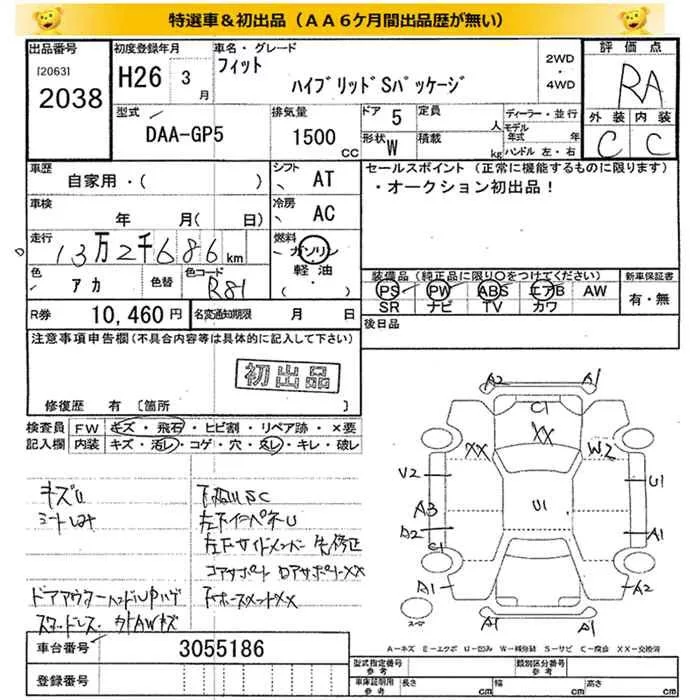 特選車＆初出品（ＡＡ６ケ月間出品歴が無い）
出品番号
[2063]
2038
初度登録年月
H26 3月
車名・グレード
フィット
ハイブリッドSパッケージ
2WD
・
4WD
評価点
RA
外装 内装
C C
型式
DAA-GP5
排気量
1500 CC
ドア 5
形状 W
定員 人
積載 kg
ディーラー・並行
モデル年式 年
ハンドル 左・右
車歴
自家用・( )
シフト
AT
車検
年 月( 日)
冷房
AC
走行
13万2千686km
燃料
ガソリン
軽油
色
アカ
色替
色コード
R81
セールスポイント（正常に機能するものに限ります）
・オークション初出品！
装備品（純正品に限り○をつけてください）
PS PW ABS エアB AW
SR ナビ TV カワ
新車保証書
有・無
R券 10,460円
名変通知期限 月 日
後日品
注意事項申告欄（不具合内容等は具体的に記入して下さい）
初出品
修復歴 有 〔箇所
検査員記入欄
FW キズ・飛石・ヒビ割・リペア跡・×要
内装 キズ・汚レ・コゲ・穴・スレ・キレ・破レ
キズU
シートしみ
左下インペネU
左下サイドメンバー先修正
コアサポート ロアサポートXX
スタッドレス・
A2 A1
C1
XX
XX W2
V2 U1
A3 U1
A2 A1
C1
A1 A2
A1 A1
A－キズ E－エクボ U－凹み W－補修跡 S－サビ C－腐食 XX－交換済
車台番号 3055186
登録番号
型式指定番号 参考
類別区分番号 参考
車庫証明用 参考
長さ cm
幅 cm
高さ cm